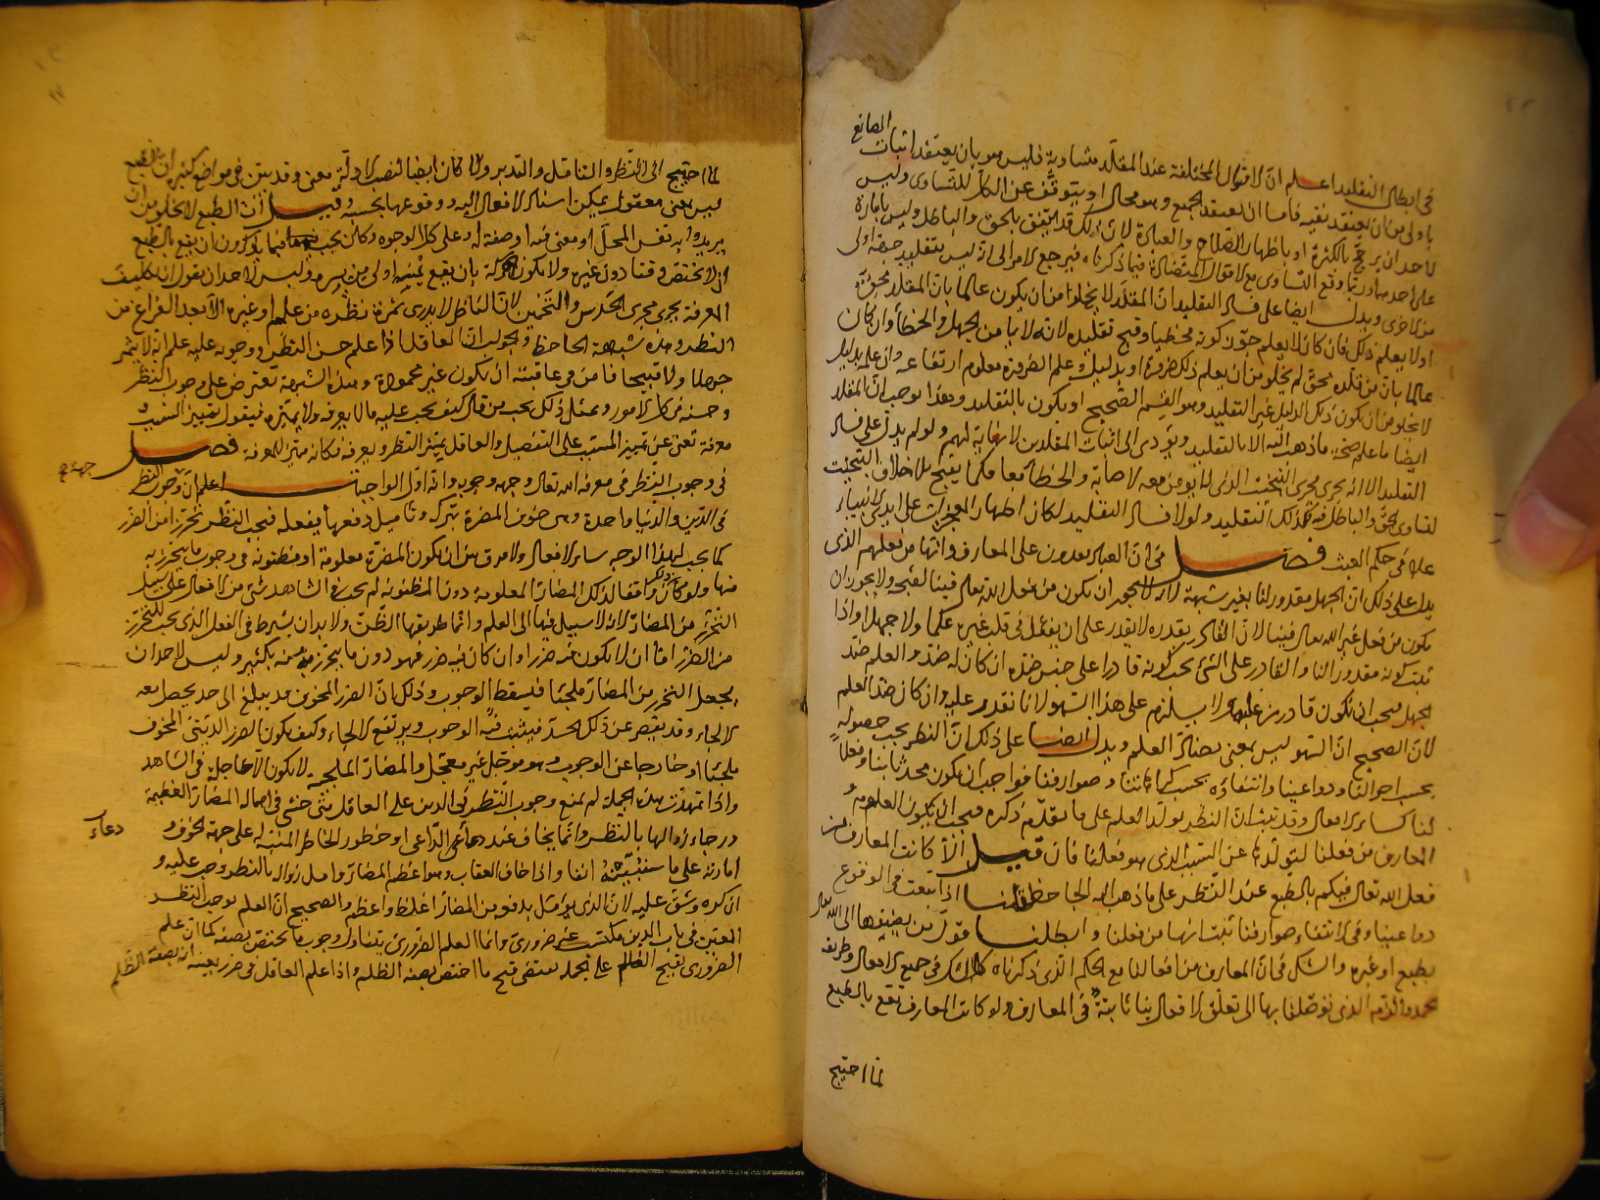 الصانع
في ابطال التقليد اعلم ان الاقوال المختلفة عند المقلد متساوية فليس هو بان يعتقد اثبات
باولى من ان يعتقد نفيه فاما ان يعتقد الجميع وهو محال او يتوقف عن الكل للتساوى وليس
لاحد ان يرجح بالكثرة او باظهار الصلاح والعبادة لان ذلك قد يتفق بالحق والباطل وليس بامارة
على احد
من الاخرى ويدل ايضا على فساد التقليد ان المقلد لا يخلوا من ان يكون عالما بان المقلد محق
او لا يعلم ذلك فان كان لا يعلم جوز كونه مخطيا وقبح تقليده لانه لا يامن الجهل والخطأ وان كان
عالما بان من قلده محق لم يخلو من ان يعلم ذلك ضرورة او بدليل وعلم الضرورة معلوم ارتفاعه وان علم بدليل
لا يخلو من ان يكون ذلك الدليل غير التقليد وهو القسم الصحيح او يكون بالتقليد وهذا يوجب ان المقلد
ايضا ما علم صحة ما ذهب اليه الا بالتقليد ويؤدى الى اثبات المقلدين لا نهاية لهم ولو لم يدل على فساد
التقليد الا انه يجرى مجرى التبخيت الذى لا يؤمن معه الاصابة والخطأ معا فكما يقبح بلا خلاف التبخيت
لتساوى الحق والباطل فيه فكذلك التقليد ولولا فساد التقليد لكان اظهار المعجزات على ايدى الانبياء
علا في حكم العبث فصل في ان العباد يقدرون على المعارف وانها من فعلهم الذى
يدل على ذلك ان الجهل مقدور لنا بغير شبهة لانه لا يجوز ان يكون من فعل الله تعالى فينا لقبحه ولا يجوز ان
يكون من فعل غير الله تعالى فينا لان القادر بقدرة لا يقدر على ان يفعل في قلب غيره علما ولا جهلا واذا
ثبت كونه مقدور لنا والقادر على الشئ يجب كونه قادرا على جنس ضده ان كان له ضد والعلم ضد
الجهل فيجب ان نكون قادرين عليه ولا يلزم على هذا السهو لانا نقدر عليه وان كان ضد العلم
لان الصحيح ان السهو ليس بمعنى يضاد العلم ويدل ايضا على ذلك ان النظر يجب حصوله
بحسب احوالنا ودواعينا وانتفاؤه بحسب كراهتنا وصوارفنا فواجب ان يكون محدثا بنا وفعلا
لنا كسائر الافعال وقد ثبت ان النظر يولد العلم على ما تقدم ذكره فيجب ان يكون العلوم و
المعارف من فعلنا لتولدها عن السبب الذى هو فعلنا فان قيل الا كانت المعارف من
فعل الله تعالى فيكم بالطبع عند النظر على ما ذهب اليه الجاحظ قلنا اذا تبعت في الوقوع
دواعينا وفي الانتفاء صوارفنا ثبت انها من فعلنا وابطلنا قول من يضيفها الى الله تعالى
بطبع او غيره والشك في ان المعارف من افعالنا مع الحكم الذى ذكرناه كالشك في جميع الافعال وطريقه
الذى توصلنا بها الى تعلق الافعال بنا ثابتة في المعارف ولو كانت المعارف تقع بالطبع
لما احتيج
لما احتيج الى النظر والتأمل والتدبر ولا كان ايضا لنصب الادلة معنى وقد بين في مواضع كثيرة ان الطبع
ليس بمعنى معقول يمكن اسناد الافعال اليه ووقوعها بحسبه وقيل ان الطبع لا يخلو من ان
يريد به نفس المحل او معنى فيه او صفة له وعلى كل الوجوه
ان لا يختص وقتا دون غيره ولا يكون الحركة بان يقع يمنة اولى من يسرة وليس لاحد ان يقول ان تكليف
المعرفة يجرى مجرى الحدس والتخمين لان الناظر لا يدرى ثمرة نظره من علم او غيره الا بعد الفراغ من
النظر وهذه شبهة الجاحظ والجواب ان العاقل اذا علم حسن النظر ووجوبه عليه علم انه لا يثمر
جهلا ولا قبيحا فامن من عاقبته ان يكون غير محمودة وهذه الشبهة تعترض على وجوب النظر
وحسنه في كل الامور وبمثل ذلك يجب من قال كيف يجب عليه ما لا يعرفه ولا يميزه فيقول تمييز السبب و
معرفته تغنى عن تمييز المسبب على التفصيل والعاقل يميز النظر ويعرفه فكانه متميز للمعرفة فصل
في وجوب النظر في معرفة الله تعالى وجهة وجوبه وانه اول الواجبات اعلم ان وجوب النظر
جهة
في الدين والدنيا واحدة وهى خوف المضرة بتركه وتأميل دفعها بفعله فيجب النظر تحرزا من الضرر
كما يجب لهذا الوجه سائر الافعال ولا فرق بين ان يكون المضرة معلومة او مظنونة في وجوب ما يتحرز به
منها ولو كان ذلك واقفا لذلك المضار المعلومة دون المظنونة لم يجب في الشاهد شئ من الافعال على سبيل
التحرز من المضار لانه لا سبيل فيها الى العلم وانما طريقها الظن ولا بد ان يشرط في الفعل الذى يجب للتحرز
من الضرر اما ان لا يكون فيه ضرر او ان كان فيه ضرر فهو دون ما يتحرز منه بكثير وليس لاحد ان
يجعل التحرز من المضار ملجئا فيسقط الوجوب وذلك ان الضرر المخوف قد يبلغ الى حد يحصل معه
الالجاء وقد يقصر عن ذلك الحد فيثبت فيه الوجوب ويرتفع الالجاء وكيف يكون الضرر الدينى المخوف
ملجئا او خارجا عن الوجوب وهو مؤجل غير معجل والمضار الملجئة لا يكون الا عاجلة في الشاهد
واذا تمهدت هذه الجملة لم يمنع وجوب النظر في الدين على العاقل متى خشى في اهماله المضار العظيمة
ورجاء زوالها بالنظر وانما يخاف عند دعاء الداعى او خطور الخاطر المنبه له على جهة الخوف و
دعاء
امارته على ما سنبينه انفا واذا خاف العقاب وهو اعظم المضار وامل زواله بالنظر وجب عليه و
ان كره وشق عليه لان الذى يؤمل بدفعه من المضار اغلظ واعظم والصحيح ان العلم بوجوب النظر
المعين في باب الدين مكتسب غير ضرورى وانما العلم الضرورى يتناول وجوب ما يختص بصفة كما ان علم
الضرورى بقبح الظلم على الجملة يقتضى قبح ما اختص بصفة الظلم واذا علم العاقل في ضرر بعينه انه بصفة الظلم